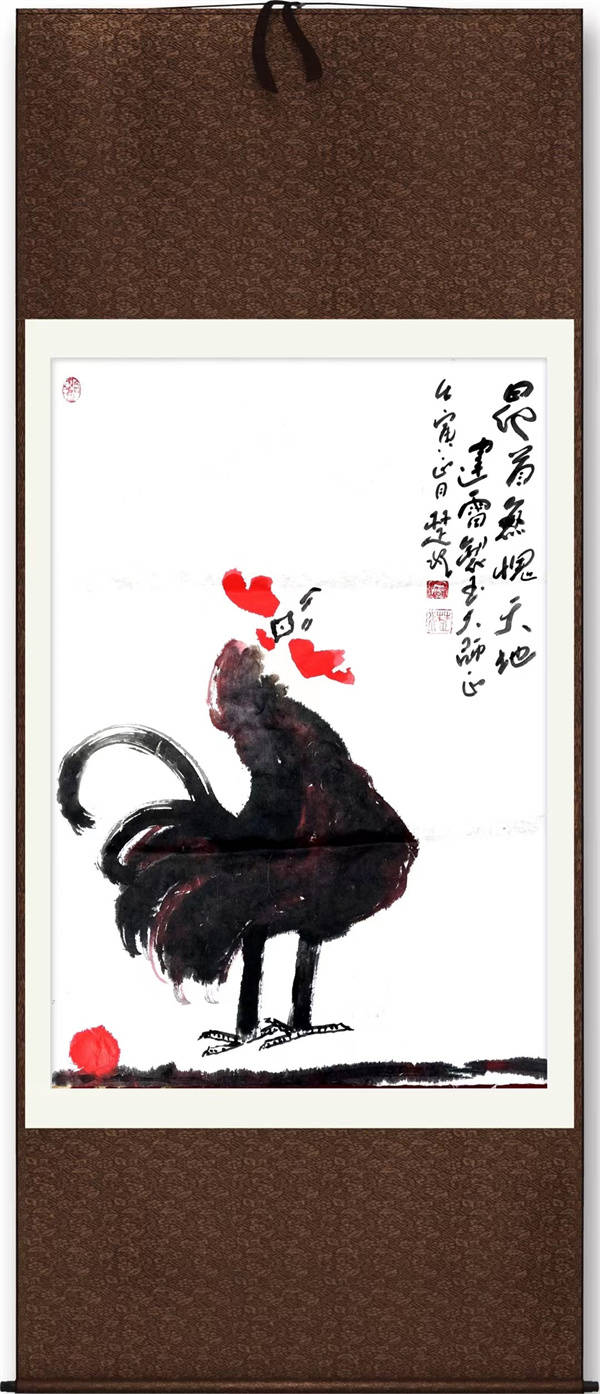 昂首無愧天地
建雷製玉大師正
壬寅正月楚